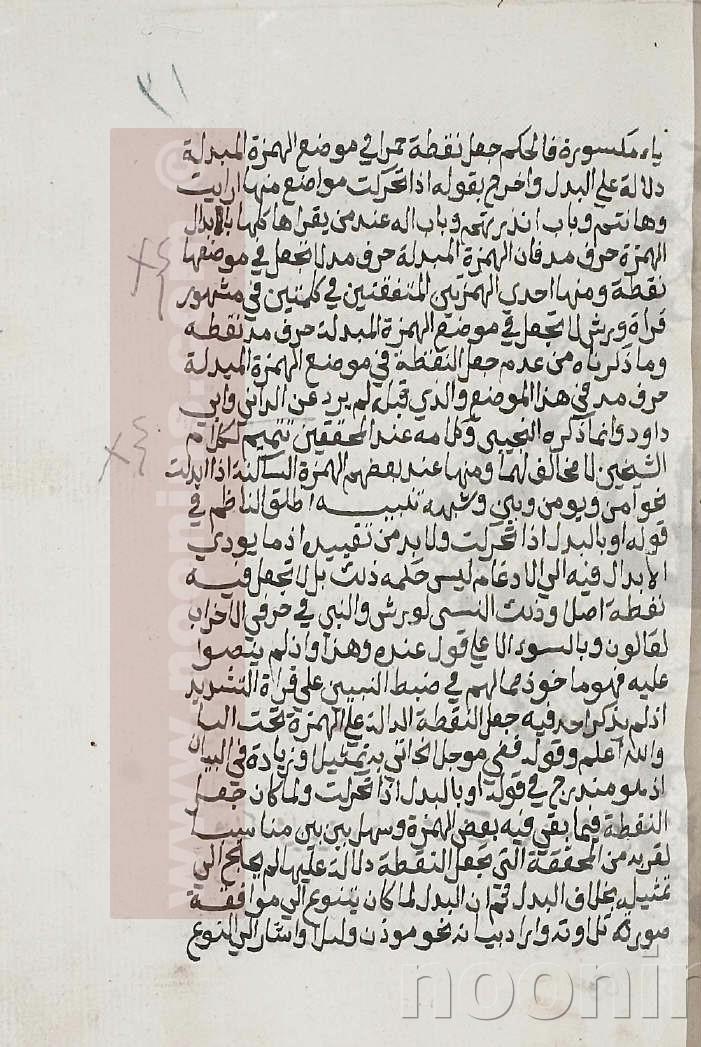 ٣١
ياء مكسورة فالحكم جعل نقطة حمرا في موضع الهمزة المبدلة
دلالة علي البدل واخرج بقوله اذا تحركت مواضع منها ارايت
وهانتم وباب انذرتهم وباب اله عند من يقراها كلها بابدال
الهمزة حرف مد فان الهمزة المبدلة حرف مد لا تجعل في موضعها
نقطة ومنها احدي الهمزتين المتفقتين في كلمتين في مشهور
قراة ورش لا تجعل في موضع الهمزة المبدلة حرف مد نقطه
وما ذكرناه من عدم جعل النقطة في موضع الهمزة المبدلة
حرف مد في هذا الموضع والذي قبله لم يرد عن الداني وابي
داود وانما ذكره التجيبي وكلامه عند المحققين تتميم لكلام
الشيخين لا مخالف لهما ومنها عند بعضهم الهمزة الساكنة اذا ابدلت
نحو امن ويومن وبير وشبهه تنبيه اطلق الناظم في
قوله او بالبدل اذا تحركت ولا بد من تقييده اذ ما يودي
الابدال فيه الي الادغام ليس حكمه ذلك بل لا تجعل فيه
نقطة اصلا وذلك النسي لورش والنبي في حرفي الاحزاب
لقالون وبالسوء الا علي قول عنده وهذا وان لم ينصوا
عليه فهو ماخوذ مما لهم في ضبط النبيين علي قراة التشديد
اذ لم يذكر احد فيه جعل النقطة الدالة علي الهمزة تحت اليا
والله اعلم وقوله ففي موجلا الخ اتي به تمثيلا وزيادة في البيان
اذ هو مندرج في قوله او بالبدل اذا تحركت ولما كان جعل
النقطة فيما بقي فيه بعض الهمزة وسهل بين بين مناسبا
لقربه من المحققة التي تجعل النقطة دلالة عليها لم يحتج الي
تمثيله بخلاف البدل ثم ان البدل لما كان يتنوع الي موافقة
صورته تلاوته واراد بيانه نحو موذن وليلا واشار الي النوع
www.noonin.com
noonin